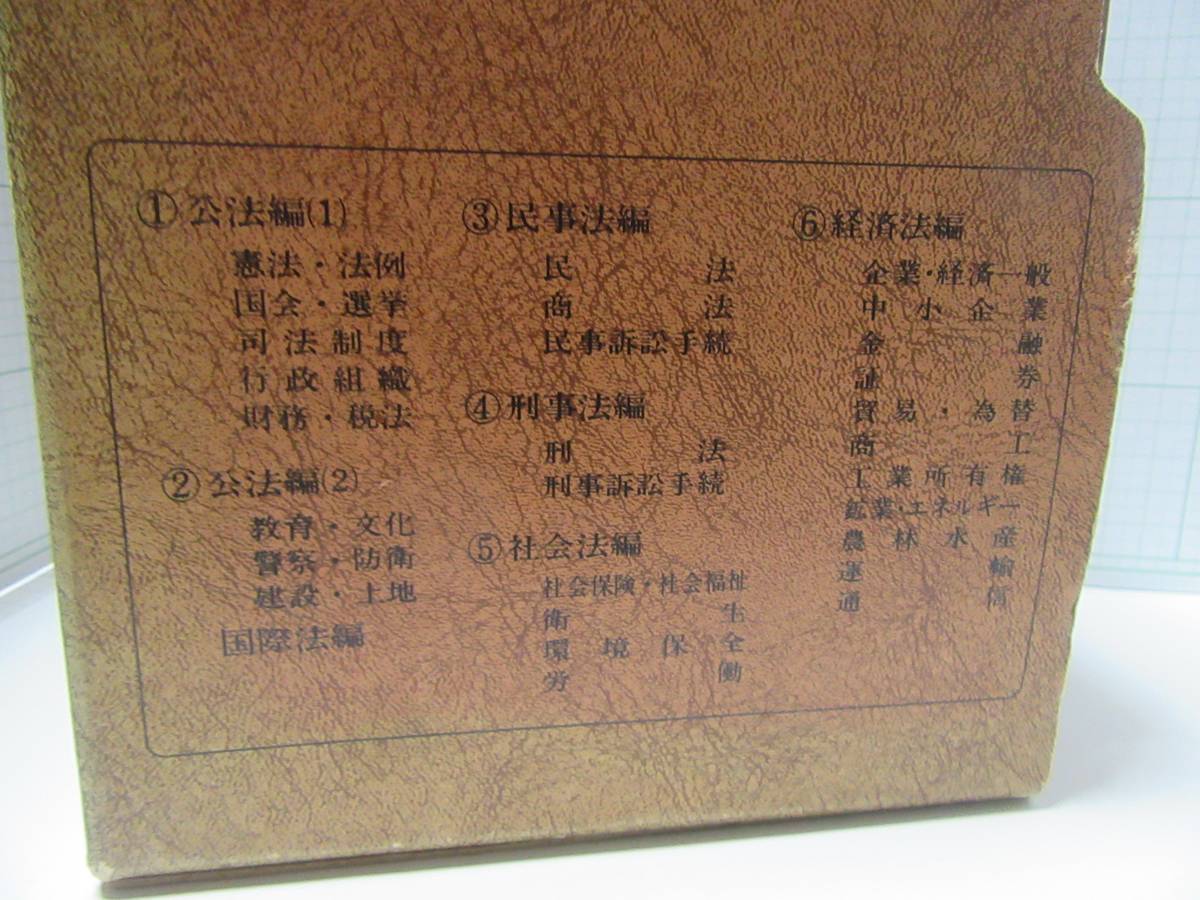 ①公法編(1)
憲法・法例
国会・選挙
司法制度
行政組織
財務・税法
②公法編(2)
教育・文化
警察・防衛
建設・土地
国際法編
③民事法編
民法
商法
民事訴訟手続
④刑事法編
刑法
刑事訴訟手続
⑤社会法編
社会保険・社会福祉
衛生
環境保全
労働
⑥経済法編
企業・経済一般
中小企業
金融
証券
貿易・為替
商工
工業所有権
鉱業・エネルギー
農林水産
運輸
通信